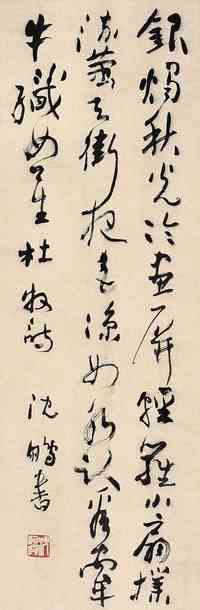 銀燭秋光冷畫屏輕羅小扇撲
流螢天街夜色涼如水臥看牽
牛織女星杜牧詩沈鵬書